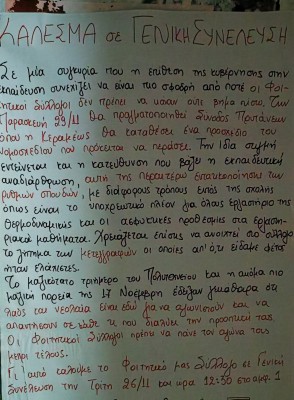 ΚΑΛΕΣΜΑ σε ΓΕΝΙΚΗ ΣΥΝΕΛΕΥΣΗ
Σε μία συγκυρία που η επίθεση της κυβέρνησης στην
εκπαίδευση συνεχίζει να είναι πιο σφοδρή από ποτέ οι Φοι-
τητικοί Σύλλογοι δεν πρέπει να κάνουν ούτε βήμα πίσω. Την
Παρασκευή 29/11 θα πραγματοποιηθεί Σύνοδος Πρυτάνεων
όπου η Κεραμέως θα καταθέσει ένα προσχέδιο του
νομοσχεδίου που πρόκειται να περάσει. Την ίδια στιγμή
εντείνεται και η κατεύθυνση που βάζει η εκπαιδευτική
αναδιάρθρωση, αυτή της περαιτέρω εντατικοποίησης των
ρυθμών σπουδών, με διάφορους τρόπους εντός της σχολής
όπως είναι το υποχρεωτικό πλέον για όλους εργαστήριο της
Θερμοδυναμικής και οι ασφυκτικές προθεσμίες στα εργαστη-
ριακά μαθήματα. Χρειάζεται επίσης να ανοιχτεί στο σύλλογο
το ζήτημα των μετεγγραφών οι οποίες απ' ό,τι είδαμε φέτος
ήταν ελάχιστες.
Το μαζικότατο τριήμερο του Πολυτεχνείου και η ακόμα πιο
μαζική πορεία της 17 Νοέμβρη έδειξαν ξεκάθαρα ότι
λαός και νεολαία είναι εδώ για να αγωνιστούν και να
απαντήσουν σε κάθε τι που διαλύει την προοπτική τους.
Οι Φοιτητικοί Σύλλογοι πρέπει να πάνε τον αγώνα τους
μέχρι τέλους.
Γι' αυτό καλούμε το Φοιτητικό μας Σύλλογο σε Γενική
Συνέλευση την Τρίτη 26/11 και ώρα 12:30 στο αμφ. 1